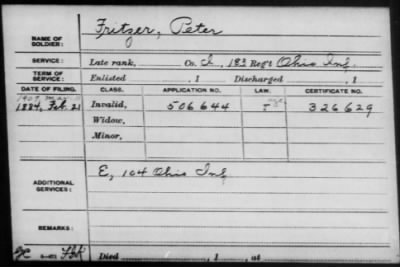 NAME OF SOLDIER: Fritzer, Peter
SERVICE: Late rank, Co. I, 183 Reg't Ohio Inf.
TERM OF SERVICE: Enlisted , 1 Discharged , 1
DATE OF FILING. CLASS. APPLICATION NO. LAW. CERTIFICATE NO.
1884, Feb. 21 Invalid, 506644 326629
Widow,
Minor,
ADDITIONAL SERVICES: E, 104 Ohio Inf
REMARKS:
Died , 1 , at